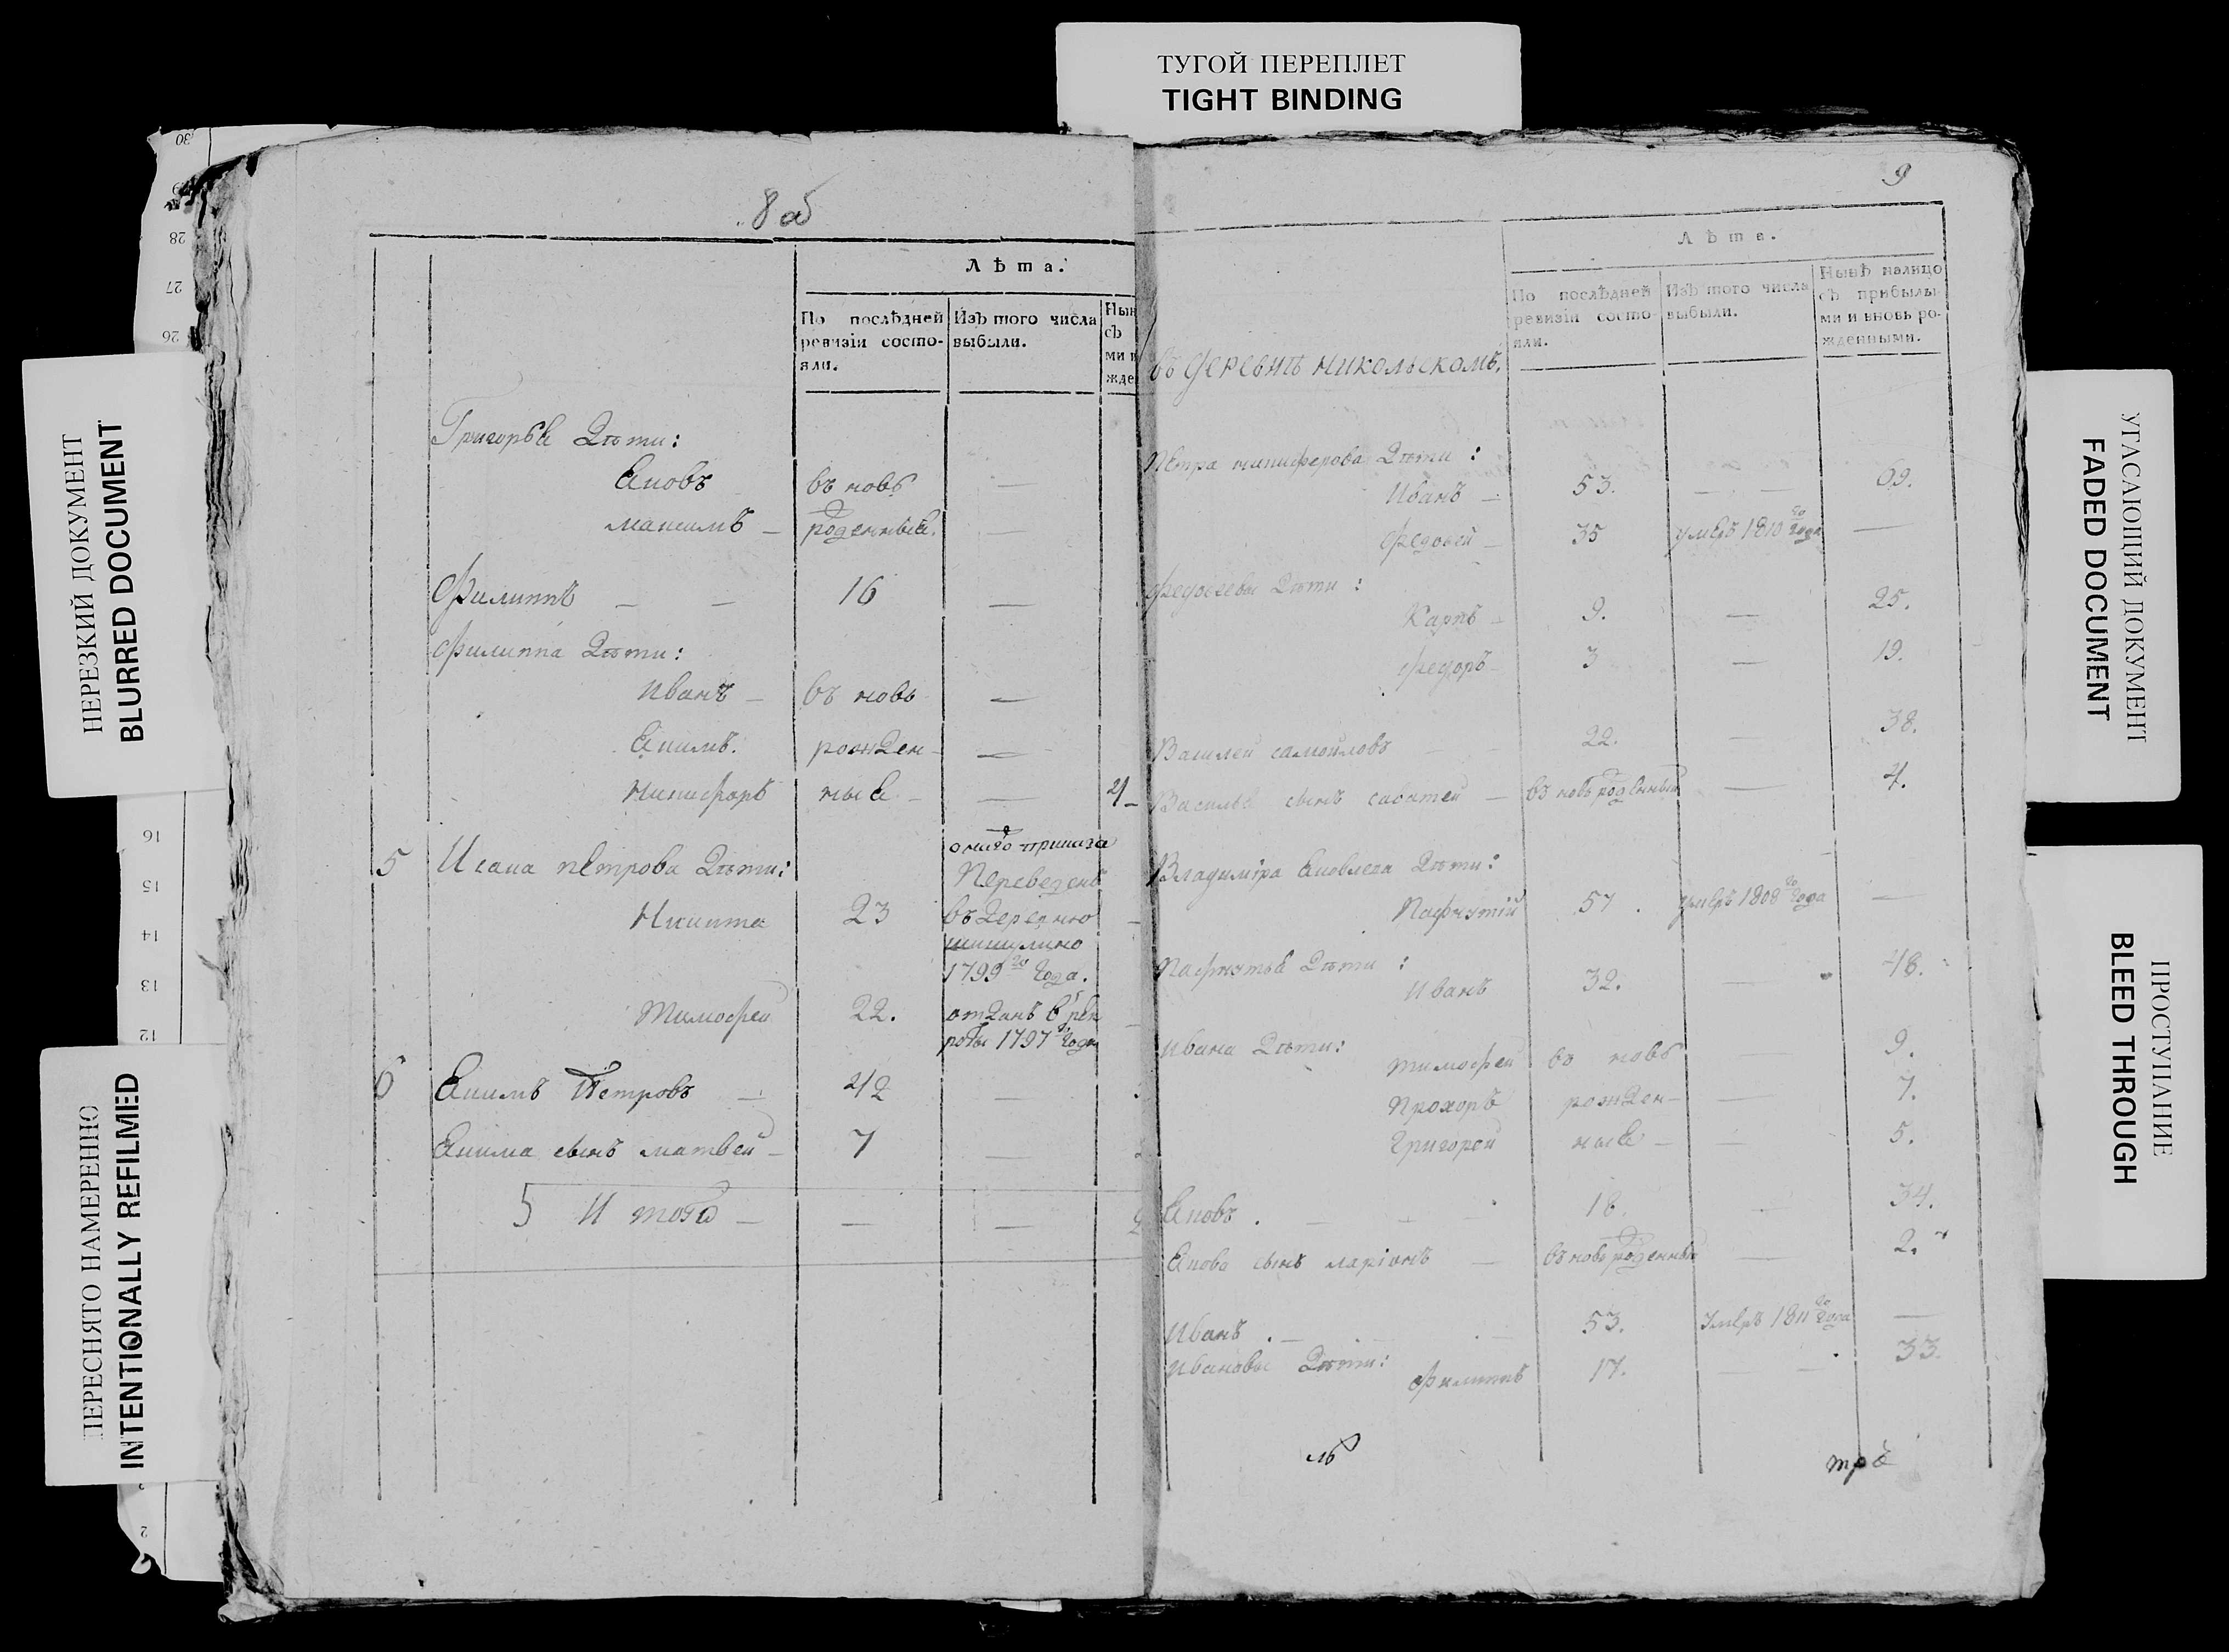 ТУГОЙ ПЕРЕПЛЕТ
TIGHT BINDING
НЕРЕЗКИЙ ДОКУМЕНТ
BLURRED DOCUMENT
ПЕРЕСНЯТО НАМЕРЕННО
INTENTIONALLY REFILMED
УГАСАЮЩИЙ ДОКУМЕНТ
FADED DOCUMENT
ПРОСТУПАНИЕ
BLEED THROUGH
30
28
27
26
16
15
14
13
12
2
8 об
Лѣта.
По послѣдней ревизіи состояли.
Изъ того числа выбыли.
Григорья дѣти:
Яковъ въ новь —
Максимъ — роженныя. —
Филиппъ — — 16 —
Филиппа дѣти:
Иванъ — въ новь —
Якимъ. рожден- —
Никифоръ ныя — —
5 Исака Петрова дѣти:
Никита 23 Переведенъ въ деревню
1799го года.
Тимофей 22. отданъ в рекруты 1797го года
6 Якимъ Петровъ — 42 —
Якима сынъ Матвей — 7 —
5 Итого — — —
9
Лѣта.
По послѣдней ревизіи состояли.
Изъ того числа выбыли.
Нынѣ налицо съ прибылыми и вновь рожденными.
въ деревнѣ Никольскомъ,
Петра Никифорова дѣти:
Иванъ — 53. — — 69.
Федосей — 35 умеръ 1810го года —
Федосеевы дѣти:
Карпъ — 9. — 25.
Федоръ — 3 — 19.
Василей Самойловъ — — 22. — 38.
Васильев сынъ Саватей — въ новь роденный — 4.
Владиміра Яковлева дѣти:
Пафнутій 57. умеръ 1808го года —
Пафнутья дѣти:
Иванъ 32. — 48.
Ивана дѣти:
Тимофей въ новь — 9.
Прохоръ рожден- — 7.
Григорей ныя — — 5.
Яковъ. — — 18. — 34.
Якова сынъ Ларіонъ — въ новь роденный — 2.
Иванъ. — — 53. умеръ 1811го года —
Ивановы дѣти:
Филиппъ 17. — 33.